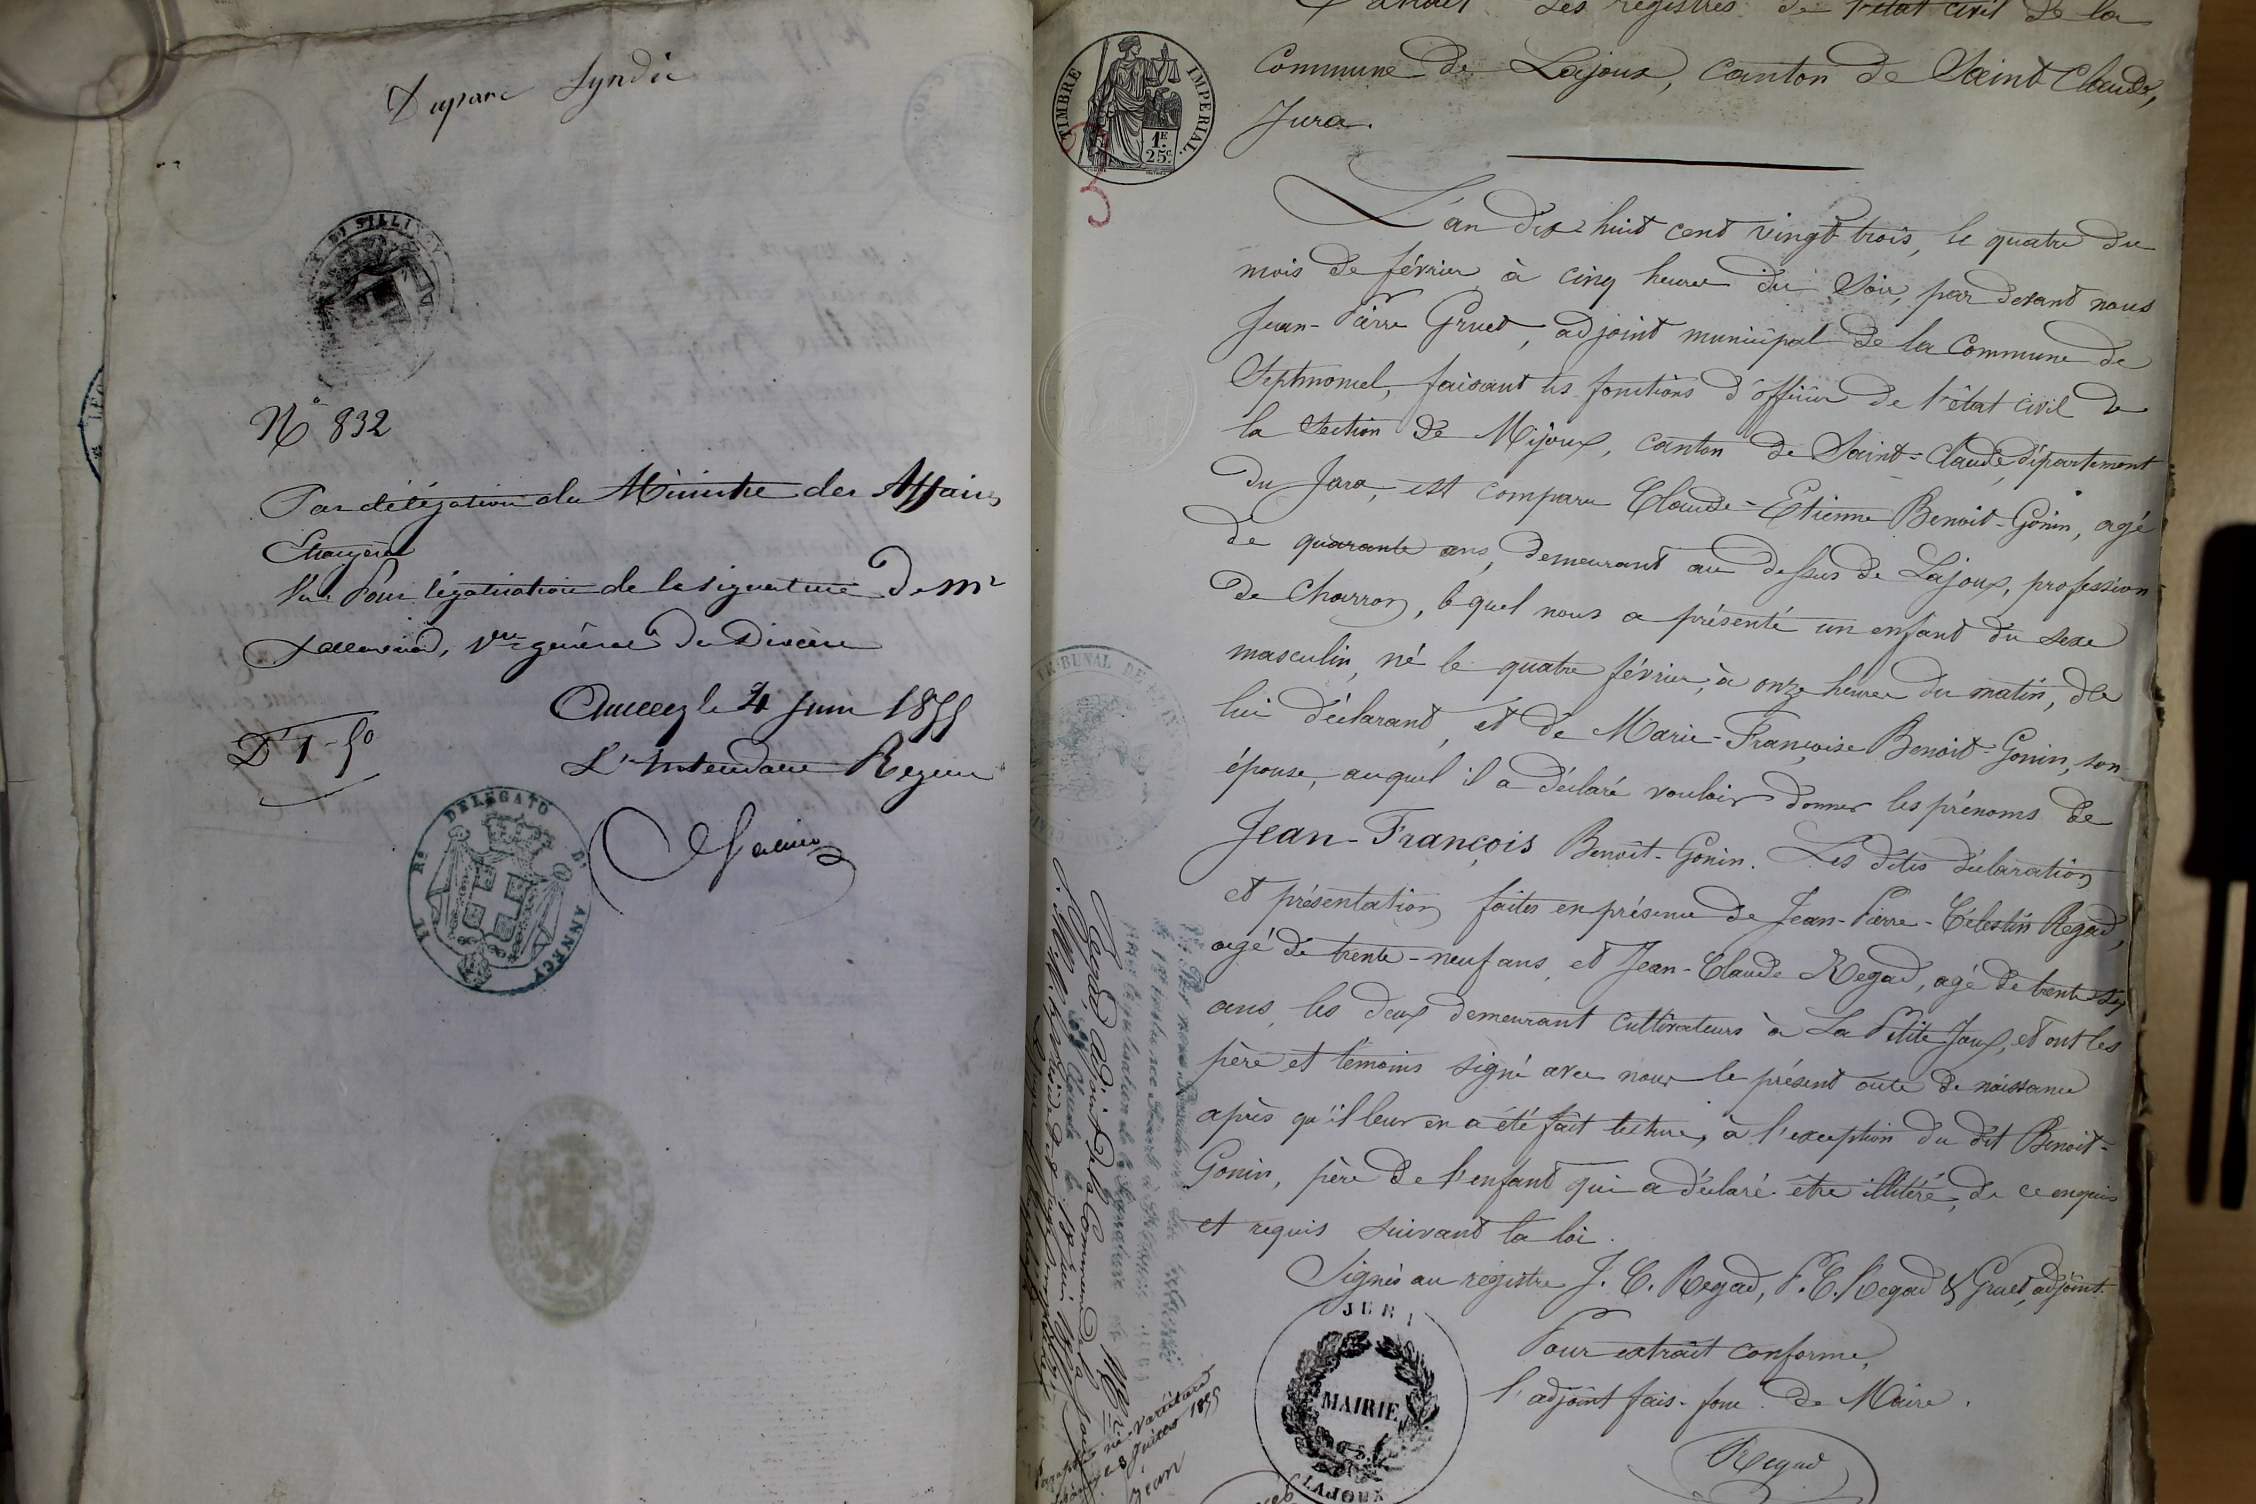 Duparc Syndic
DE SILLINGY
N° 832
Par délégation du Ministre des Affaires
Etrangères
Vu Pour légalisation de la signature de Mr
Vre général du Diocèse
Annecy le 4 Juin 1855
L'Intendant Regent
Dt 1-50
IL Ro DELEGATO D'ANNECY
Extrait des registres de l'état civil de la
Commune de Lajoux, canton de Saint Claude,
Jura.
TIMBRE IMPERIAL
1F.
25c.
3
L'an dix huit cent vingt trois, le quatre du
mois de février à cinq heures du Soir, par devant nous
Jean-Pierre Gruet, adjoint municipal de la Commune de
Septmoncel, faisant les fonctions d'officier de l'état civil de
la Section de Mijoux, canton de Saint-Claude, département
du Jura, est comparu Claude-Etienne Benoit-Gonin, agé
de quarante ans, demeurant au dessus de Lajoux, profession
de Charron, lequel nous a présenté un enfant du sexe
masculin, né le quatre février, à onze heures du matin, de
lui déclarant, et de Marie-Françoise Benoit-Gonin, son
épouse, auquel il a déclaré vouloir donner les prénoms de
Jean-François Benoit-Gonin. Les dites déclaration
et présentation faites en présence de Jean-Pierre-Célestin Regad,
agé de trente-neuf ans, et Jean-Claude Regad, agé de trente six
ans, les deux demeurant cultivateurs à La Petite Joux, et ont les
père et témoins signé avec nous le présent acte de naissance
après qu'il leur en a été fait lecture, à l'exception du dit Benoit-
Gonin, père de l'enfant qui a déclaré être illitéré, de ce enquis
et requis suivant la loi.
Signés au registre J. C. Regad, P. C. Regad & Gruet, adjoint.
Pour extrait conforme,
l'adjoint fais. fonc. de Maire.
Regad
JURA
MAIRIE
LAJOUX
TRIBUNAL DE
Regad, adjoint de la Commune de
ne varietur
1855